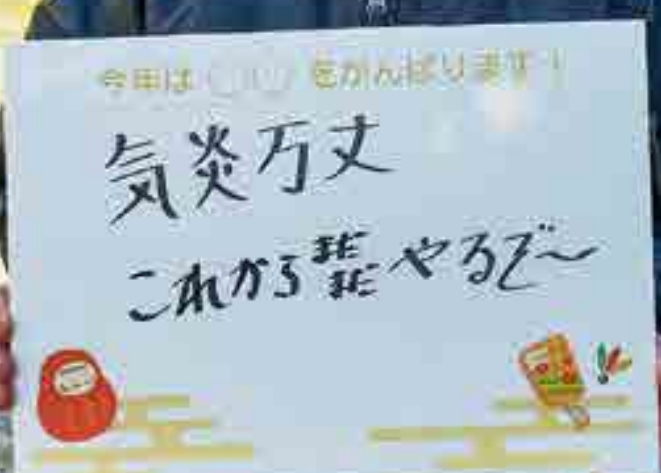 今年は ○○ をがんばります！
気炎万丈
これからまだまだやるで〜